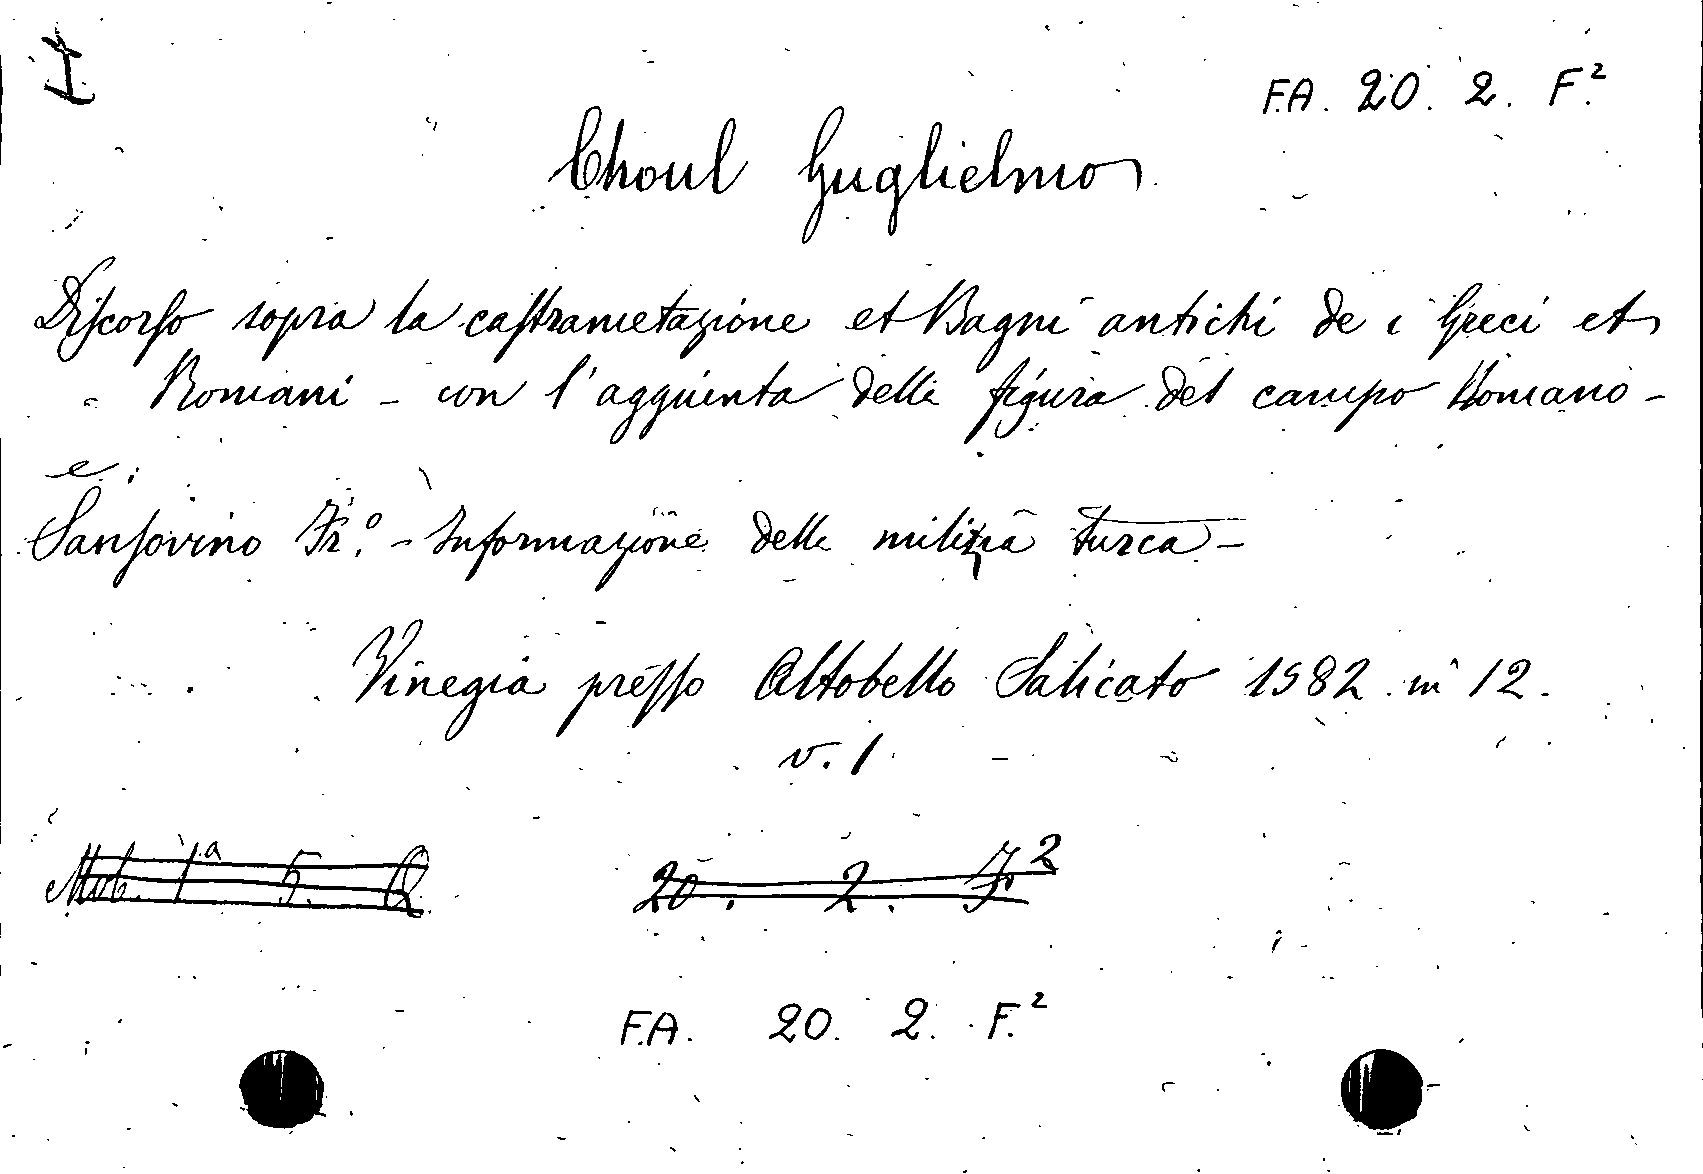 F.A. 20. 2. F.²
Choul Guglielmo
Discorso sopra la castrametazione et Bagni antichi de i Greci et
Romani - con l'aggiunta della figura del campo Romano -
e
Sansovino Fr.º - Informazione della milizia turca -
Vinegia presso Altobello Salicato 1582 in 12.
v. 1
Mob. 1ª 5. Q. 20. 2. F²
F.A. 20. 2. F.²